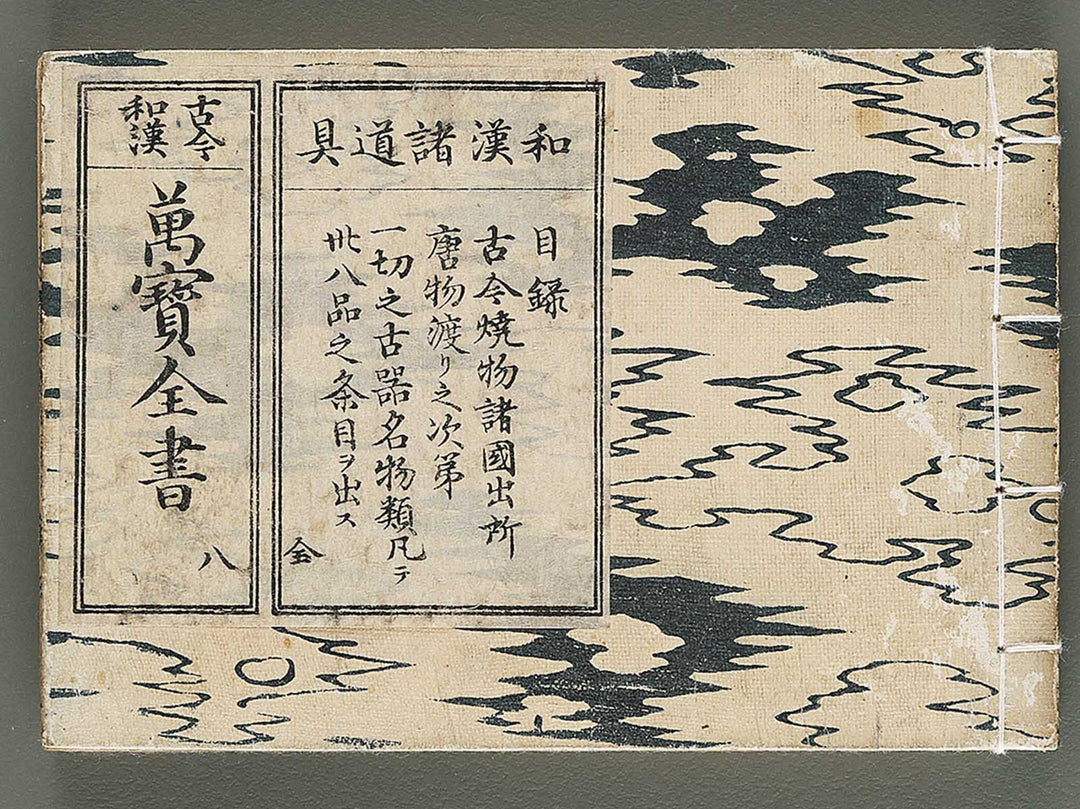 和漢諸道具
目録
古今燒物諸國出所
唐物渡リ之次第
一切之古器名物類凡テ
卅八品之条目ヲ出ス
全
古今
和漢
萬寶全書
八